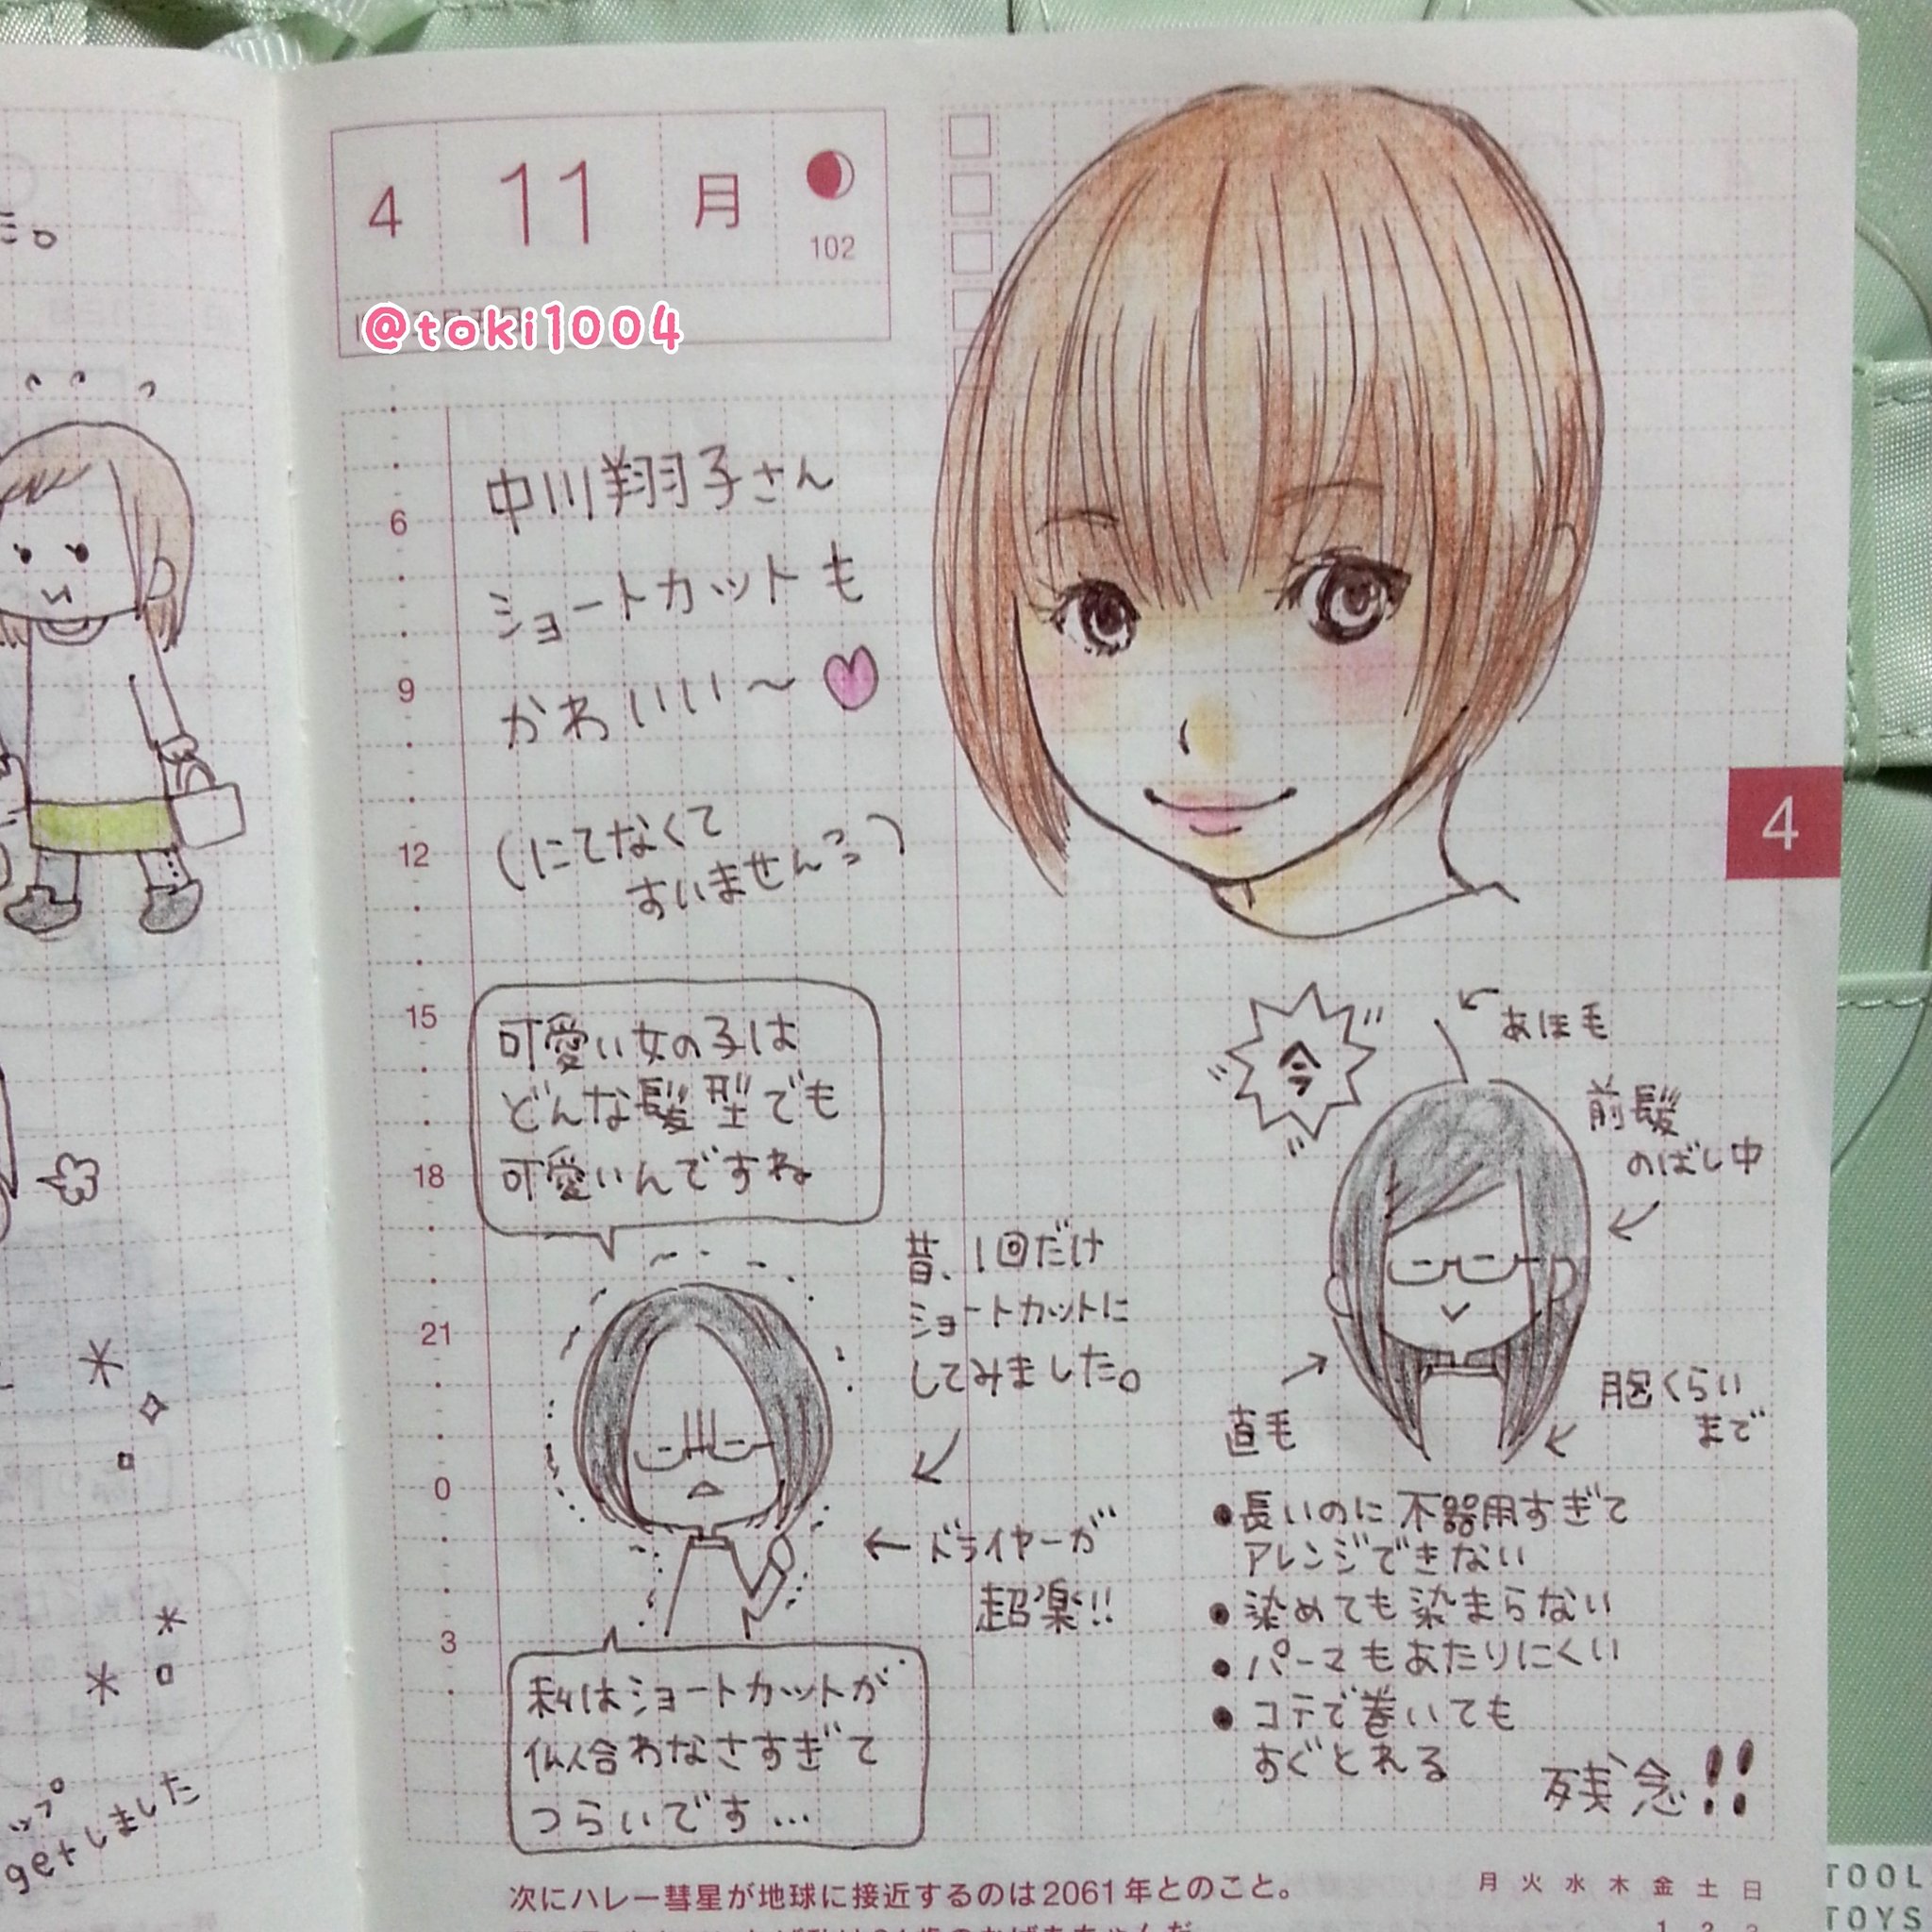 だ。
getしました
4 11 月
102
@toki1004
中川翔子さん
ショートカットも
かわいい〜♥
(にてなくて
すいません)
6
9
12
15
18
21
0
3
4
可愛い女の子は
どんな髪型でも
可愛いんですね
昔、1回だけ
ショートカットに
してみました。
←ドライヤーが
超楽!!
私はショートカットが
似合わなさすぎて
つらいです…
今
あほ毛
前髪
のばし中
直毛
胸くらい
まで
●長いのに不器用すぎて
アレンジできない
●染めても染まらない
●パーマもあたりにくい
●コテで巻いても
すぐとれる
残念!!
次にハレー彗星が地球に接近するのは2061年とのこと。
月 火 水 木 金 土 日
1 2 3
TOOL
TOYS